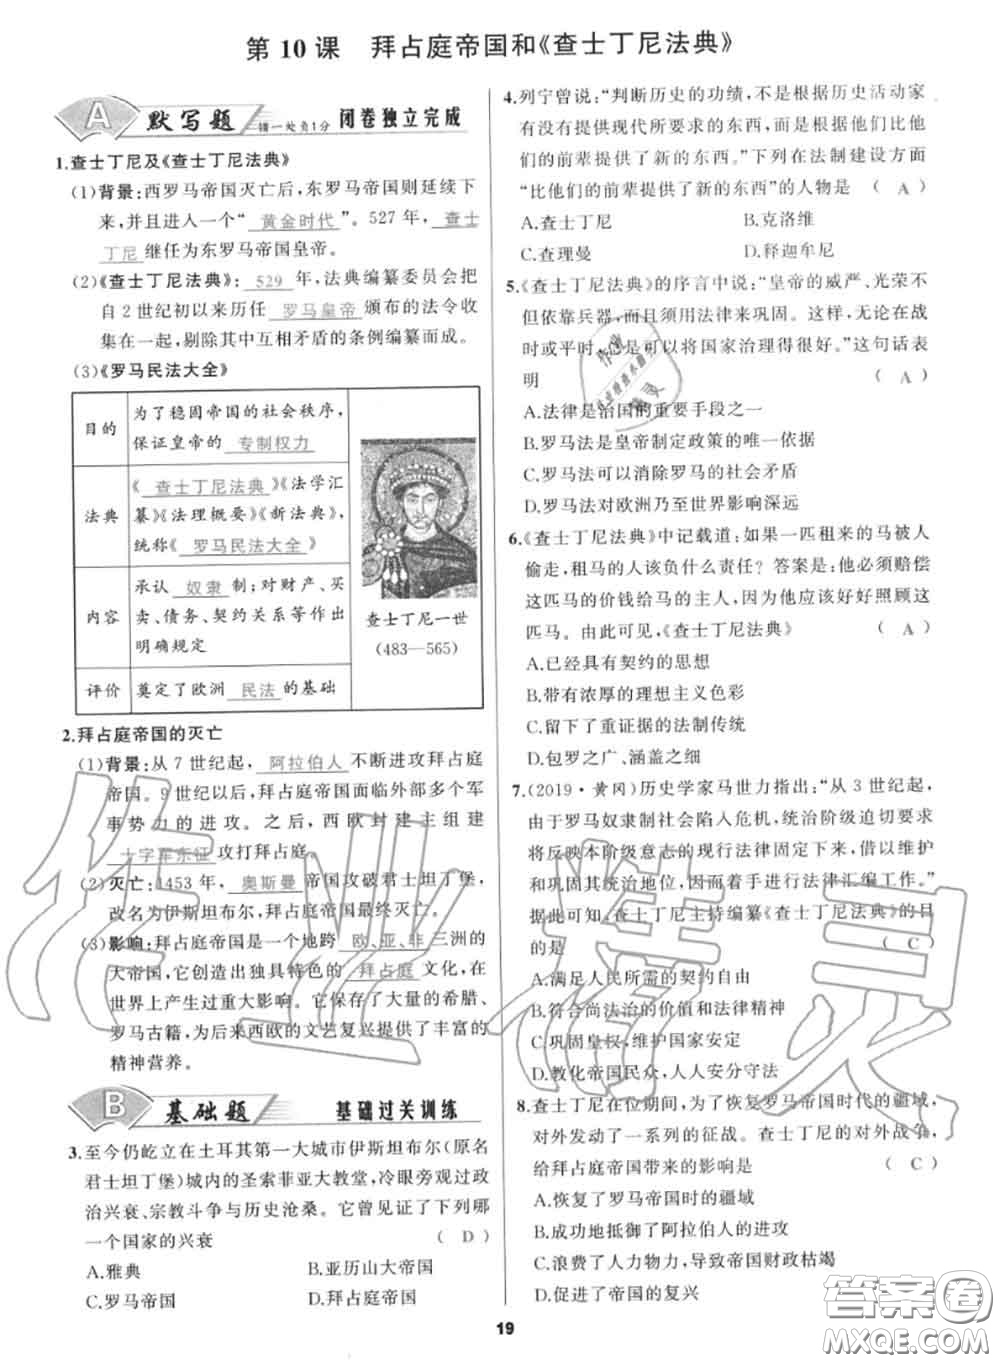 第10课 拜占庭帝国和《查士丁尼法典》
A 默写题 错一处负1分 闭卷独立完成
1.查士丁尼及《查士丁尼法典》
(1)背景:西罗马帝国灭亡后,东罗马帝国则延续下
来,并且进入一个“ 黄金时代 ”。527年, 查士
丁尼 继任为东罗马帝国皇帝。
(2)《查士丁尼法典》: 529 年,法典编纂委员会把
自2世纪初以来历任 罗马皇帝 颁布的法令收
集在一起,剔除其中互相矛盾的条例编纂而成。
(3)《罗马民法大全》
目的
为了稳固帝国的社会秩序,
保证皇帝的 专制权力
法典
《 查士丁尼法典 》《法学汇
纂》《法理概要》《新法典》,
统称《 罗马民法大全 》
内容
承认 奴隶 制;对财产、买
卖、债务、契约关系等作出
明确规定
评价
奠定了欧洲 民法 的基础
查士丁尼一世
(483—565)
2.拜占庭帝国的灭亡
(1)背景:从7世纪起, 阿拉伯人 不断进攻拜占庭
帝国。9世纪以后,拜占庭帝国面临外部多个军
事势力的进攻。之后,西欧封建主组建
十字军东征 攻打拜占庭。
(2)灭亡:1453年, 奥斯曼 帝国攻破君士坦丁堡,
改名为伊斯坦布尔,拜占庭帝国最终灭亡。
(3)影响:拜占庭帝国是一个地跨 欧、亚、非 三洲的
大帝国,它创造出独具特色的 拜占庭 文化,在
世界上产生过重大影响。它保存了大量的希腊、
罗马古籍,为后来西欧的文艺复兴提供了丰富的
精神营养。
B 基础题 基础过关训练
3.至今仍屹立在土耳其第一大城市伊斯坦布尔(原名
君士坦丁堡)城内的圣索菲亚大教堂,冷眼旁观过政
治兴衰、宗教斗争与历史沧桑。它曾见证了下列哪
一个国家的兴衰 ( D )
A.雅典 B.亚历山大帝国
C.罗马帝国 D.拜占庭帝国
4.列宁曾说:“判断历史的功绩,不是根据历史活动家
有没有提供现代所要求的东西,而是根据他们比他
们的前辈提供了新的东西。”下列在法制建设方面
“比他们的前辈提供了新的东西”的人物是 ( A )
A.查士丁尼 B.克洛维
C.查理曼 D.释迦牟尼
5.《查士丁尼法典》的序言中说:“皇帝的威严、光荣不
但依靠兵器,而且须用法律来巩固。这样,无论在战
时或平时,总是可以将国家治理得很好。”这句话表
明 ( A )
A.法律是治国的重要手段之一
B.罗马法是皇帝制定政策的唯一依据
C.罗马法可以消除罗马的社会矛盾
D.罗马法对欧洲乃至世界影响深远
6.《查士丁尼法典》中记载道:如果一匹租来的马被人
偷走,租马的人该负什么责任?答案是:他必须赔偿
这匹马的价钱给马的主人,因为他应该好好照顾这
匹马。由此可见,《查士丁尼法典》 ( A )
A.已经具有契约的思想
B.带有浓厚的理想主义色彩
C.留下了重证据的法制传统
D.包罗之广、涵盖之细
7.(2019·黄冈)历史学家马世力指出:“从3世纪起,
由于罗马奴隶制社会陷入危机,统治阶级迫切要求
将反映本阶级意志的现行法律固定下来,借以维护
和巩固其统治地位,因而着手进行法律汇编工作。”
据此可知,查士丁尼主持编纂《查士丁尼法典》的目
的是 ( C )
A.满足人民所需的契约自由
B.符合尚法治的价值和法律精神
C.巩固皇权,维护国家安定
D.教化帝国民众,人人安分守法
8.查士丁尼在位期间,为了恢复罗马帝国时代的疆域,
对外发动了一系列的征战。查士丁尼的对外战争,
给拜占庭帝国带来的影响是 ( C )
A.恢复了罗马帝国时的疆域
B.成功地抵御了阿拉伯人的进攻
C.浪费了人力物力,导致帝国财政枯竭
D.促进了帝国的复兴
19
作业精灵
答案圈
MXQE.COM